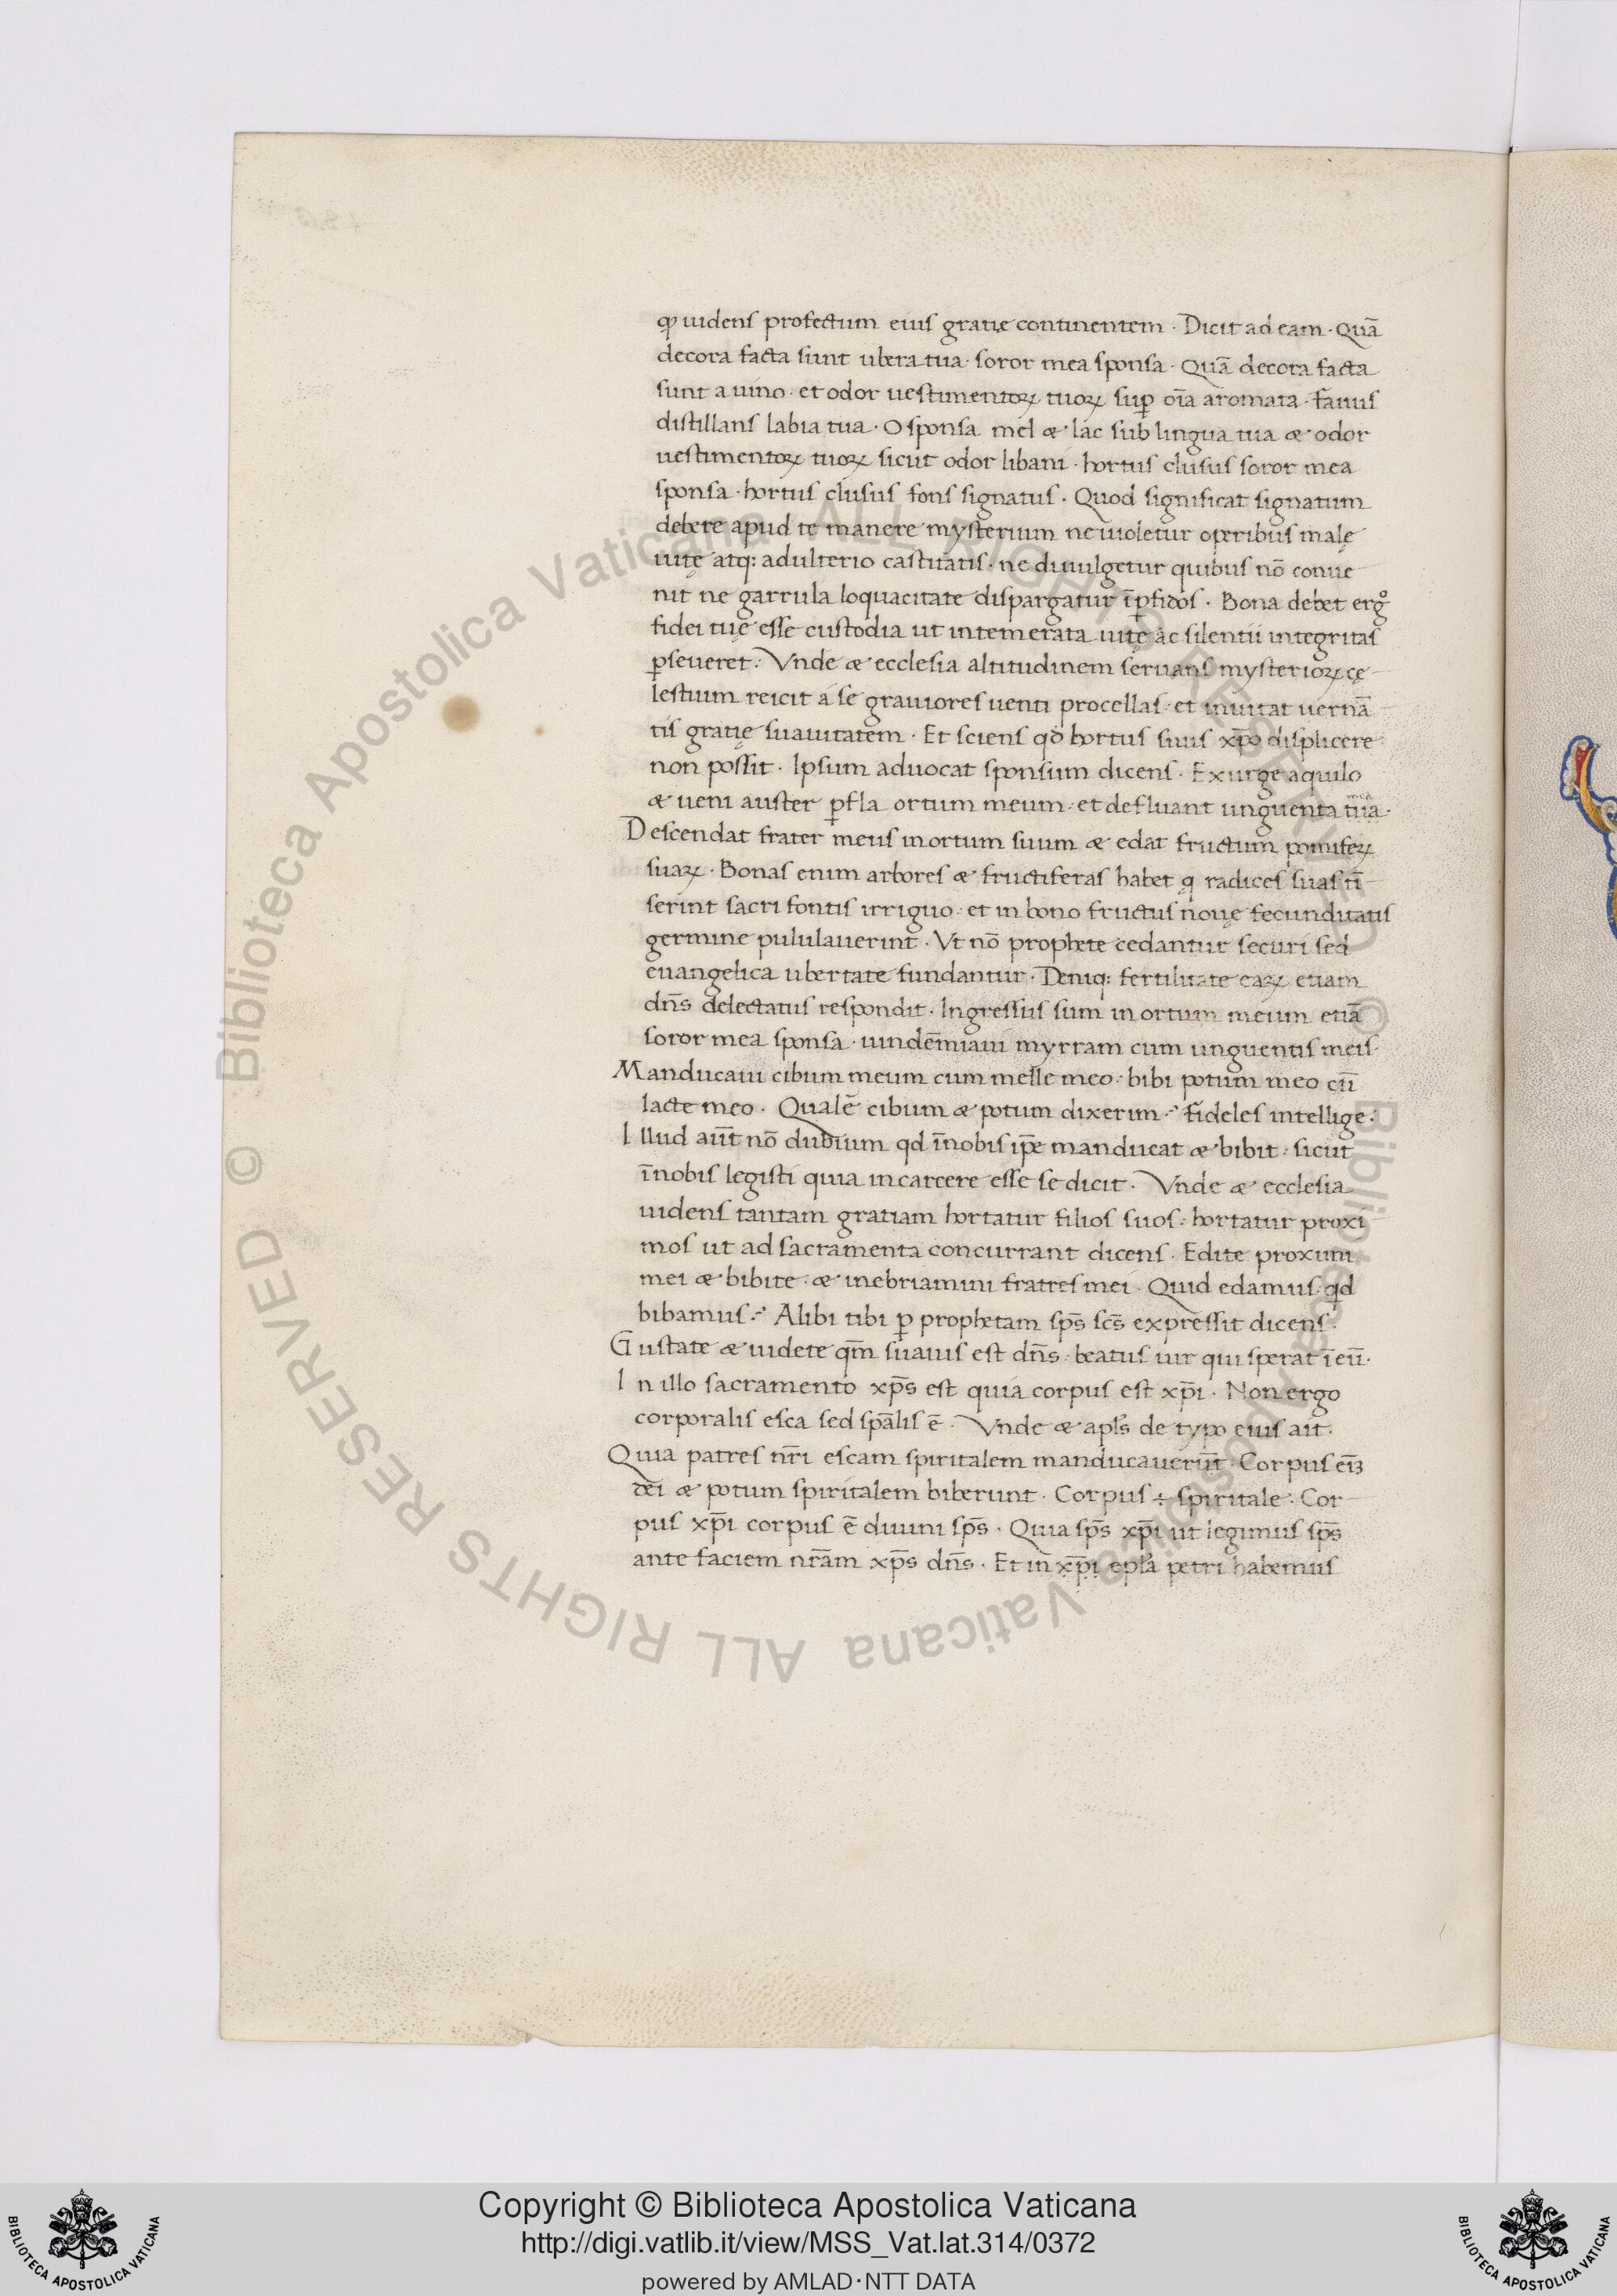 ꝙ uidens profectum eius gratię continentem · Dicit ad eam · Quā
decora facta sunt ubera tua · soror mea sponsa · Quā decora facta
sunt a uino · et odor uestimentoꝝ tuoꝝ suꝑ oīa aromata · fauus
distillans labia tua · O sponsa mel æ lac sub lingua tua æ odor
uestimentoꝝ tuoꝝ sicut odor libani · hortus clusus soror mea
sponsa · hortus clusus fons signatus · Quod significat signatum
debere apud te manere mysterium ne uioletur operibus malę
uitę atq: adulterio castitatis · ne diuulgetur quibus nō conue
nit ne garrula loquacitate dispargatur ī ꝑfidos · Bona debet ergͦ
fidei tuę esse custodia ut intemerata uitę ac silentii integritas
ꝑseueret : Vnde æ ecclesia altitudinem seruans mysterioꝝ cę
lestium reicit a se grauiores uenti procellas · et inuitat uernā
tis gratię suauitatem · Et sciens qđ hortus suus xp̄o displicere
non possit · Ipsum aduocat sponsum dicens · Exurge aquilo
æ ueni auster ꝑfla ortum meum · et defluant unguenta tua mea ·
Descendat frater meus in ortum suum æ edat fructum pomiferꝝ
suaꝝ · Bonas enim arbores æ fructiferas habet q radices suas tī
serint sacri fontis irriguo · et in bono fructus nouę fecunditatis
germine pululauerint · Vt nō prophete cedantur securi sed
euangelica ubertate fundantur · Deniq: fertilitate eaꝝ etiam
dn̄s delectatus respondit · Ingressus sum in ortum meum etiā
soror mea sponsa · uindēmiaui myrram cum unguentis meis ·
Manducaui cibum meum cum melle meo · bibi potum meo cū
lacte meo · Qualē cibum æ potum dixerim · fideles intellige :
Illud aūt nō dubium qd īnobis ip̄e manducat æ bibit : sicut
īnobis legisti quia in carcere esse se dicit · Vnde æ ecclesia
uidens tantam gratiam hortatur filios suos : hortatur proxi
mos ut ad sacramenta concurrant dicens · Edite proximi
mei æ bibite · æ inebriamini fratres mei · Quid edamus · qd
bibamus · Alibi tibi ꝑ prophetam sp̄s sc̄s expressit dicens ·
Gustate æ uidete qm̄ suauis est dn̄s · beatus uir qui sperat ī eū ·
In illo sacramento xp̄s est quia corpus est xp̄i · Non ergo
corporalis esca sed sp̄alis ē · Vnde æ apl̄s de typo eius ait ·
Quia patres nr̄i escam spiritalem manducauerūt · Corpus eī3
dei æ potum spiritalem biberunt · Corpus ÷ spiritale · Cor
pus xp̄i corpus ē diuini sp̄s · Quia sp̄s xp̄i ut legimus sp̄s
ante faciem nr̄am xp̄s dn̄s · Et in xp̄i epl̄a petri habemus
© Biblioteca Apostolica Vaticana ALL RIGHTS RESERVED
© Biblioteca Apostolica Vaticana ALL RIGHTS RESERVED
Copyright © Biblioteca Apostolica Vaticana
http://digi.vatlib.it/view/MSS_Vat.lat.314/0372
powered by AMLAD·NTT DATA
BIBLIOTECA APOSTOLICA VATICANA
BIBLIOTECA APOSTOLICA VATICANA